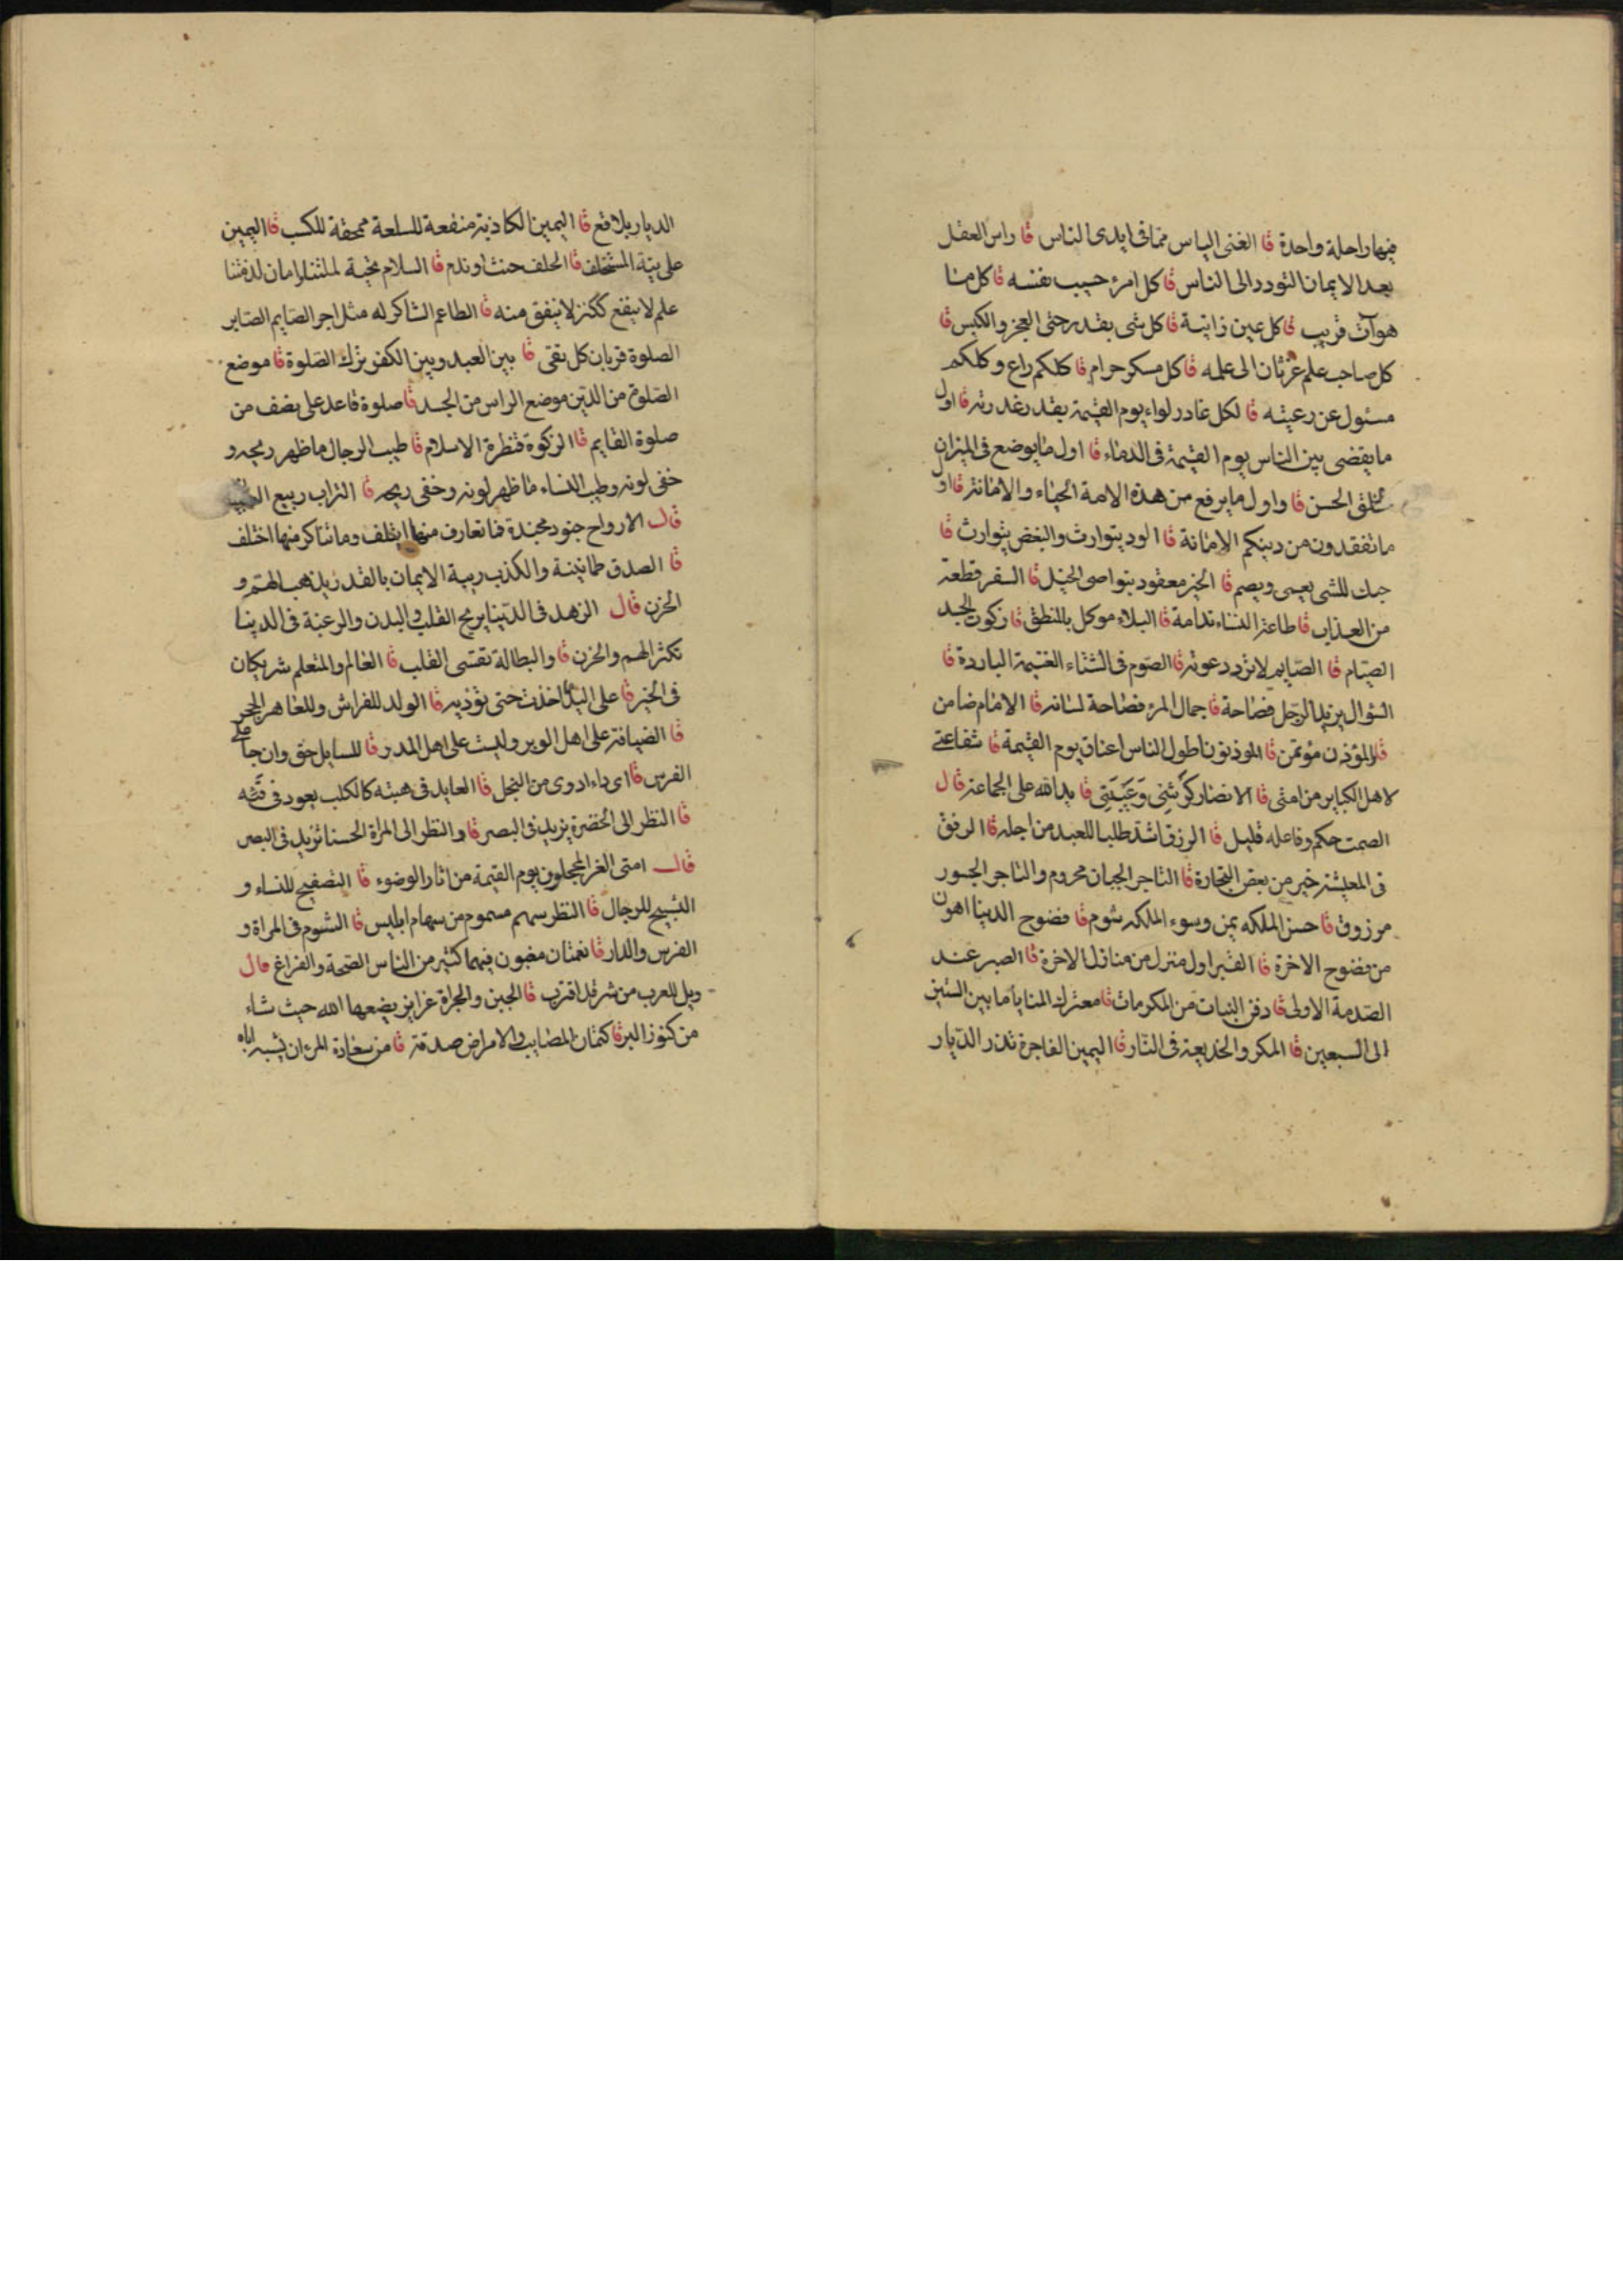 فيها راحلة واحدة قا الغنى الياس مما فى ايدى الناس قا راس العقل
بعد الايمان التودد الى الناس قا كل امرئ حسيب نفسه قا كل ما
هو آت قريب قا كل عين زانية قا كل شى بقدر حتى العجز والكيس قا
كل صاحب علم غرثان الى علمه قا كل مسكر حرام قا كلكم راع وكلكم
مسئول عن رعيته قا لكل غادر لواء يوم القيمة بقدر غدرته قا اول
ما يقضى بين الناس يوم القيمة فى الدماء قا اول ما يوضع فى الميزان
الخلق الحسن قا واول ما يرفع من هذه الامة الحياء والامانة قا اول
ما تفقدون من دينكم الامانة قا الود يتوارث والبغض يتوارث قا
حبك للشى يعمى ويصم قا الخير معقود بنواصى الخيل قا السفر قطعة
من العذاب قا طاعة النساء ندامة قا البلاء موكل بالمنطق قا زكوة الجسد
الصيام قا الصايم لا ترد دعوته قا الصوم فى الشتاء الغنيمة الباردة قا
السؤال يزيد الرجل فصاحة قا جمال المرء فصاحة لسانه قا الامام ضامن
والمؤذن مؤتمن قا الموذنون اطول الناس اعناق يوم القيمة قا شفاعتى
لاهل الكباير من امتى قا الانصار كَرِشِى وَعَيْبَتِى قا يد الله على الجماعة قال
الصمت حكم وفاعله قليل قا الرزق اشد طلبا للعبد من اجله قا الرفق
فى المعيشة خير من بعض التجارة قا التاجر الجبان محروم والتاجر الجسور
مرزوق قا حسن الملكه يمن وسوء الملكه شوم قا فضوح الدينا اهون
من فضوح الاخرة قا القبر اول منزل من منازل الاخرة قا الصبر عند
الصدمة الاولى قا دفن البنات من المكرمات قا معترك المنايا ما بين الستين
الى السبعين قا المكر والخديعة فى النار قا اليمين الفاجرة تذر الديار
الديار بلاقع قا اليمين الكاذبة منفعة للسلعة ممحقة للكسب قا اليمين
على نية المستحلف قا الحلف حنث او ندم قا السلام تحية لملتنا وامان لذمتنا
علم لا ينفع ككنز لا ينفق منه قا الطاعم الشاكر له مثل اجر الصايم الصابر
الصلوة قربان كل تقى قا بين العبد وبين الكفر ترك الصلوة قا موضع
الصلوة من الدين موضع الراس من الجسد قا صلوة قاعد على نصف من
صلوة القايم قا الزكوة قنطرة الاسلام قا طيب الرجال ما ظهر ريحه و
خفى لونه وطيب النساء ما ظهر لونه وخفى ريحه قا التراب ربيع
قال الارواح جنود مجندة فما تعارف منها ايتلف وما تناكر منها اختلف
قا الصدق طمانينة والكذب ريبة الايمان بالقدر يذهب الهم و
الحزن قال الزهد فى الدينا يريح القلب والبدن والرغبة فى الدينا
تكثر الهم والحزن قا والبطالة تقسى القلب قا العالم والمتعلم شريكان
فى الخير قا على اليد ما اخذت حتى تؤديه قا الولد للفراش وللعاهر الحجر
قا الضيافة على اهل الوبر وليست على اهل المدر قا للسايل حق وان جا على
الفرس قا اى داء ادوى من البخل قا العايد فى هبته كالكلب يعود فى قَيْئه
قا النظر الى الخضرة يزيد فى البصر قا والنظر الى المراة الحسنا تزيد فى البصر
قال امتى الغر المحجلون يوم القيمة من اثار الوضوء قا التصفيح للنساء و
التسبيح للرجال قا النظر سهم مسموم من سهام ابليس قا الشوم فى المراة و
الفرس والدار قا نعمتان مغبون فيهما كثير من الناس الصحة والفراغ قال
ويل للعرب من شر قد اقترب قا الجبن والجراة غرايز يضعها الله حيث شاء
من كنوز البر قا كتمان المصايب والامراض صدقة قا من سعادة المرء ان يشبه اباه